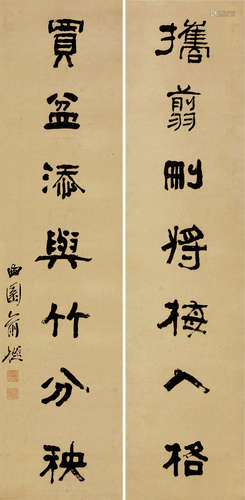 攜翦刪將梅入格
買盆添與竹分秧
曲園俞樾